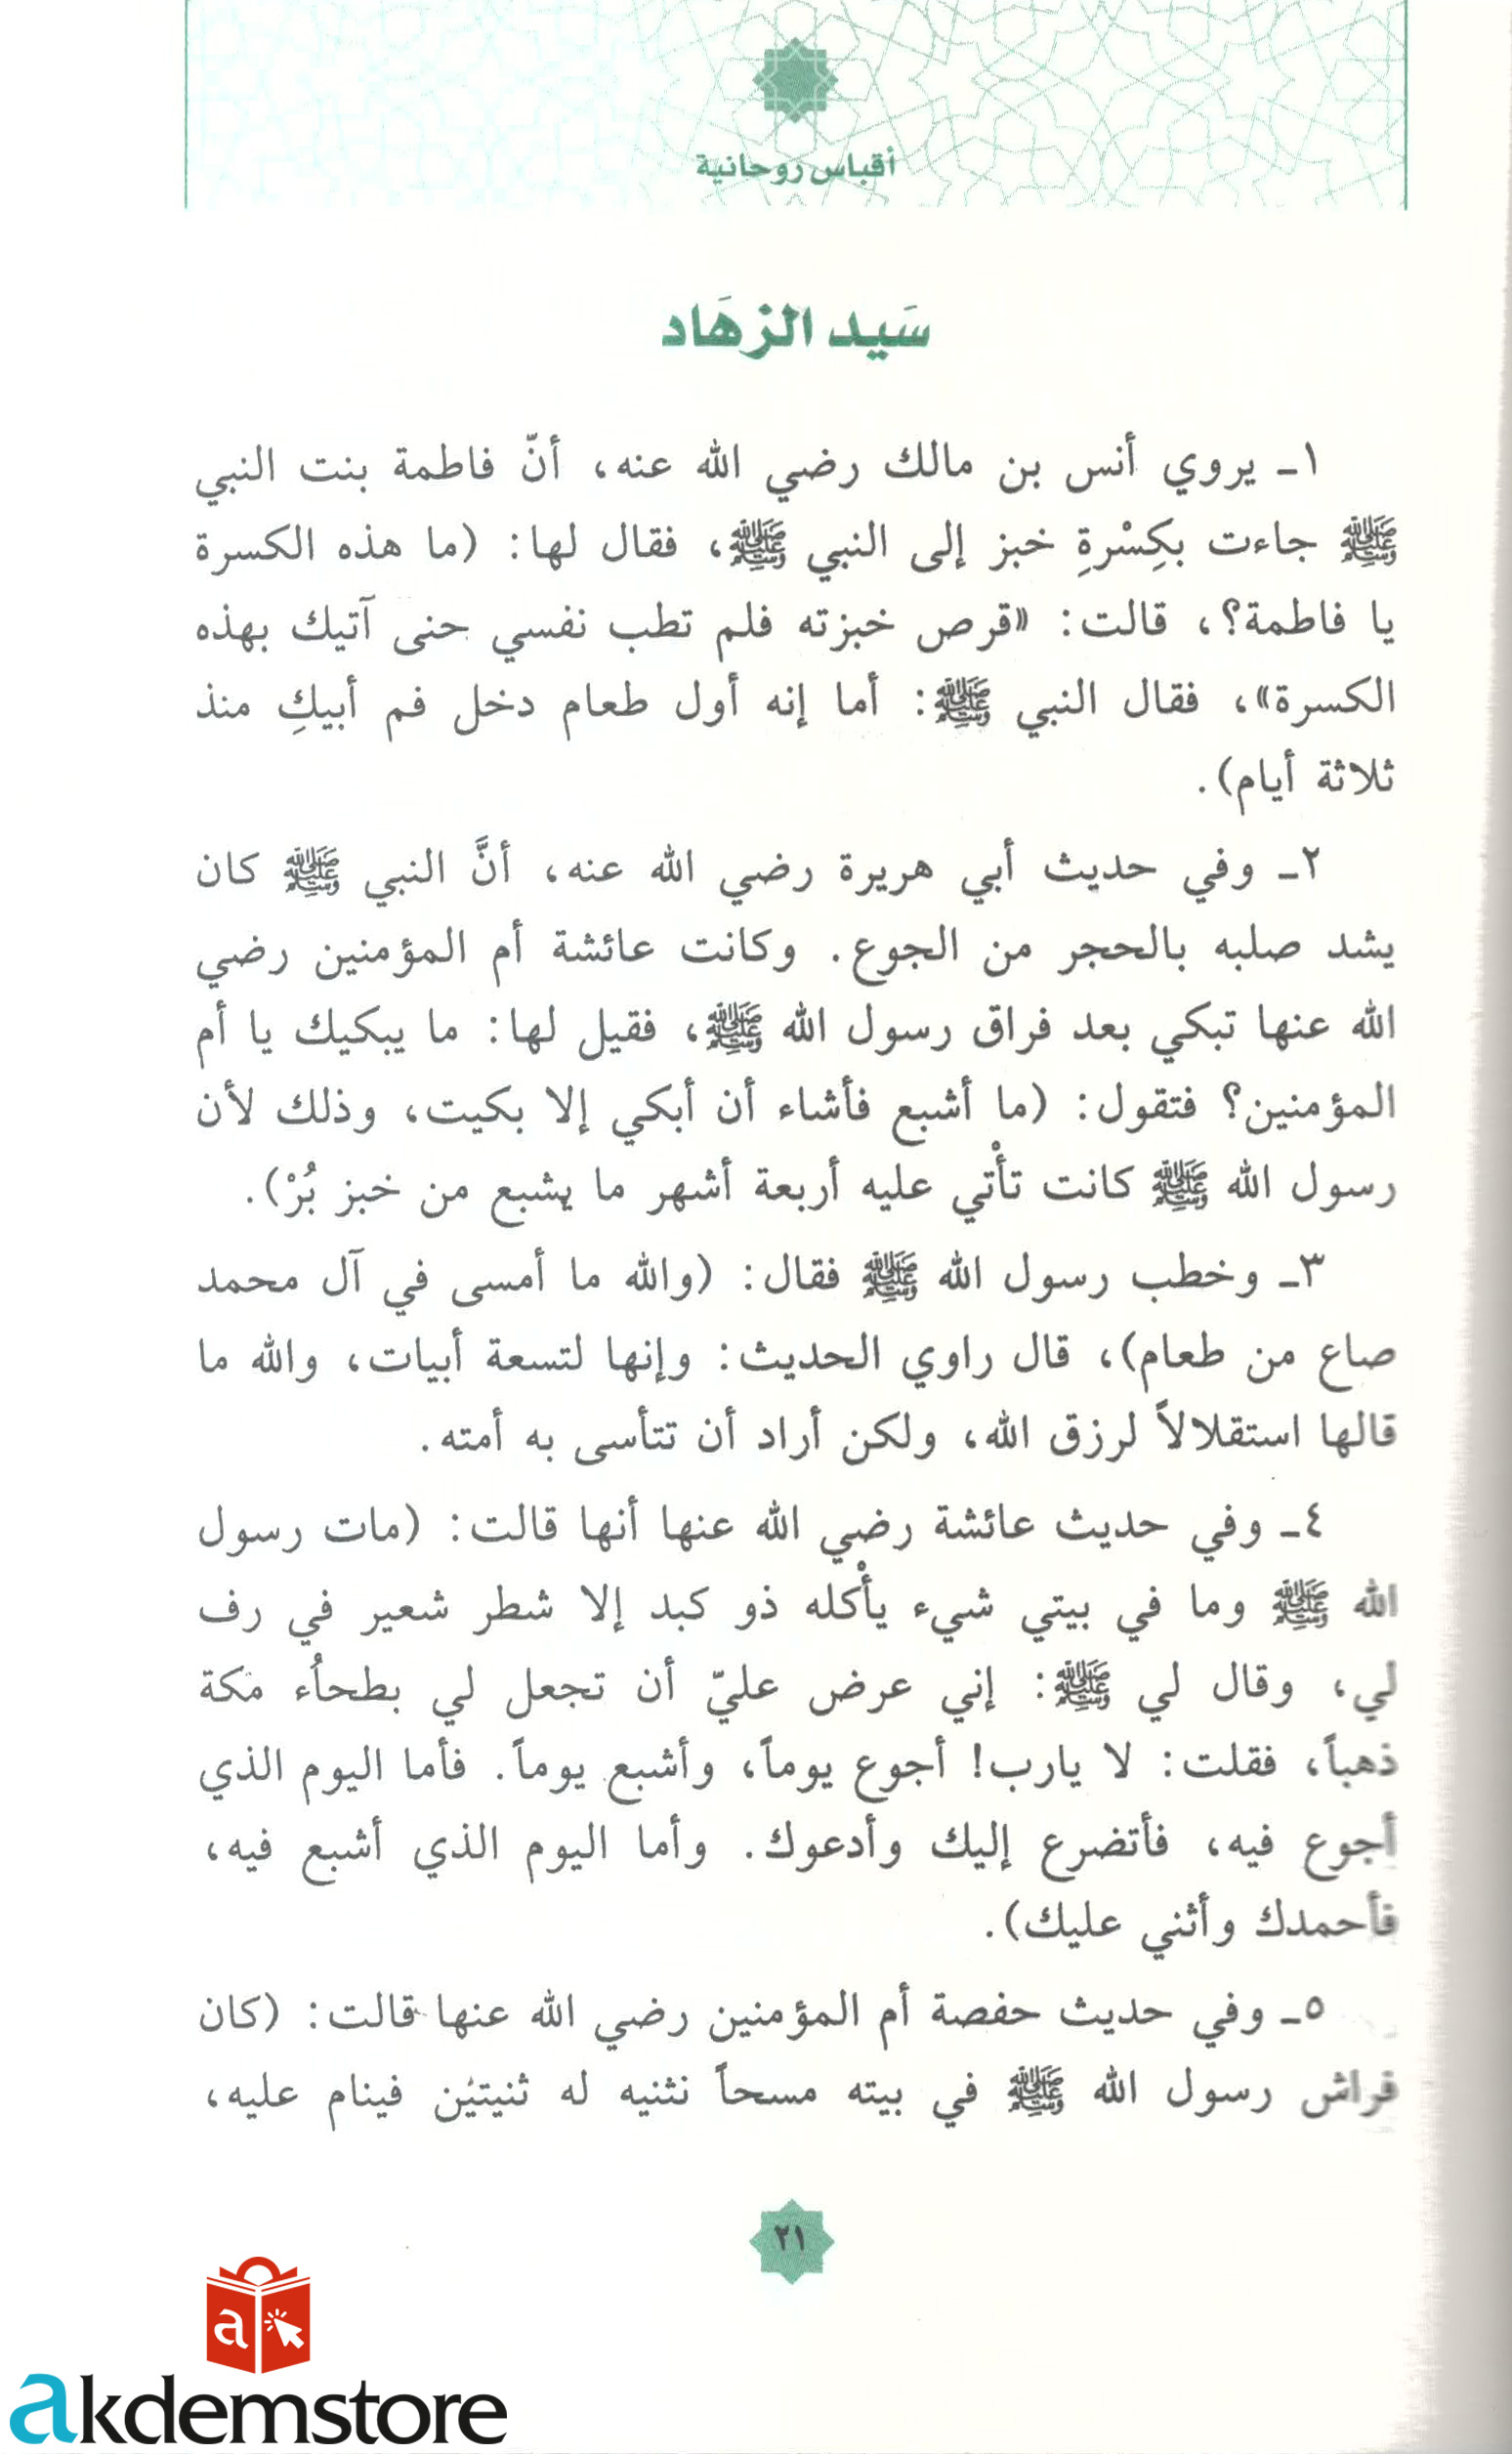 أقباس روحانية
سَيد الزهَاد
١ـ يروي أنس بن مالك رضي الله عنه، أنّ فاطمة بنت النبي
ﷺ جاءت بكِسْرةِ خبز إلى النبي ﷺ، فقال لها: (ما هذه الكسرة
يا فاطمة؟، قالت: «قرص خبزته فلم تطب نفسي حنى آتيك بهذه
الكسرة»، فقال النبي ﷺ: أما إنه أول طعام دخل فم أبيكِ منذ
ثلاثة أيام).
٢ـ وفي حديث أبي هريرة رضي الله عنه، أنَّ النبي ﷺ كان
يشد صلبه بالحجر من الجوع. وكانت عائشة أم المؤمنين رضي
الله عنها تبكي بعد فراق رسول الله ﷺ، فقيل لها: ما يبكيك يا أم
المؤمنين؟ فتقول: (ما أشبع فأشاء أن أبكي إلا بكيت، وذلك لأن
رسول الله ﷺ كانت تأْتي عليه أربعة أشهر ما يشبع من خبز بُرْ).
٣ـ وخطب رسول الله ﷺ فقال: (والله ما أمسى في آل محمد
صاع من طعام)، قال راوي الحديث: وإنها لتسعة أبيات، والله ما
قالها استقلالاً لرزق الله، ولكن أراد أن تتأسى به أمته.
٤ـ وفي حديث عائشة رضي الله عنها أنها قالت: (مات رسول
الله ﷺ وما في بيتي شيء يأْكله ذو كبد إلا شطر شعير في رف
لي، وقال لي ﷺ: إني عرض عليّ أن تجعل لي بطحاُء مكة
ذهباً، فقلت: لا يارب! أجوع يوماً، وأشبع يوماً. فأما اليوم الذي
أجوع فيه، فأتضرع إليك وأدعوك. وأما اليوم الذي أشبع فيه،
فأحمدك وأثني عليك).
٥ـ وفي حديث حفصة أم المؤمنين رضي الله عنها قالت: (كان
فراش رسول الله ﷺ في بيته مسحاً نثنيه له ثنيتيْن فينام عليه،
٢١
a
akdemstore